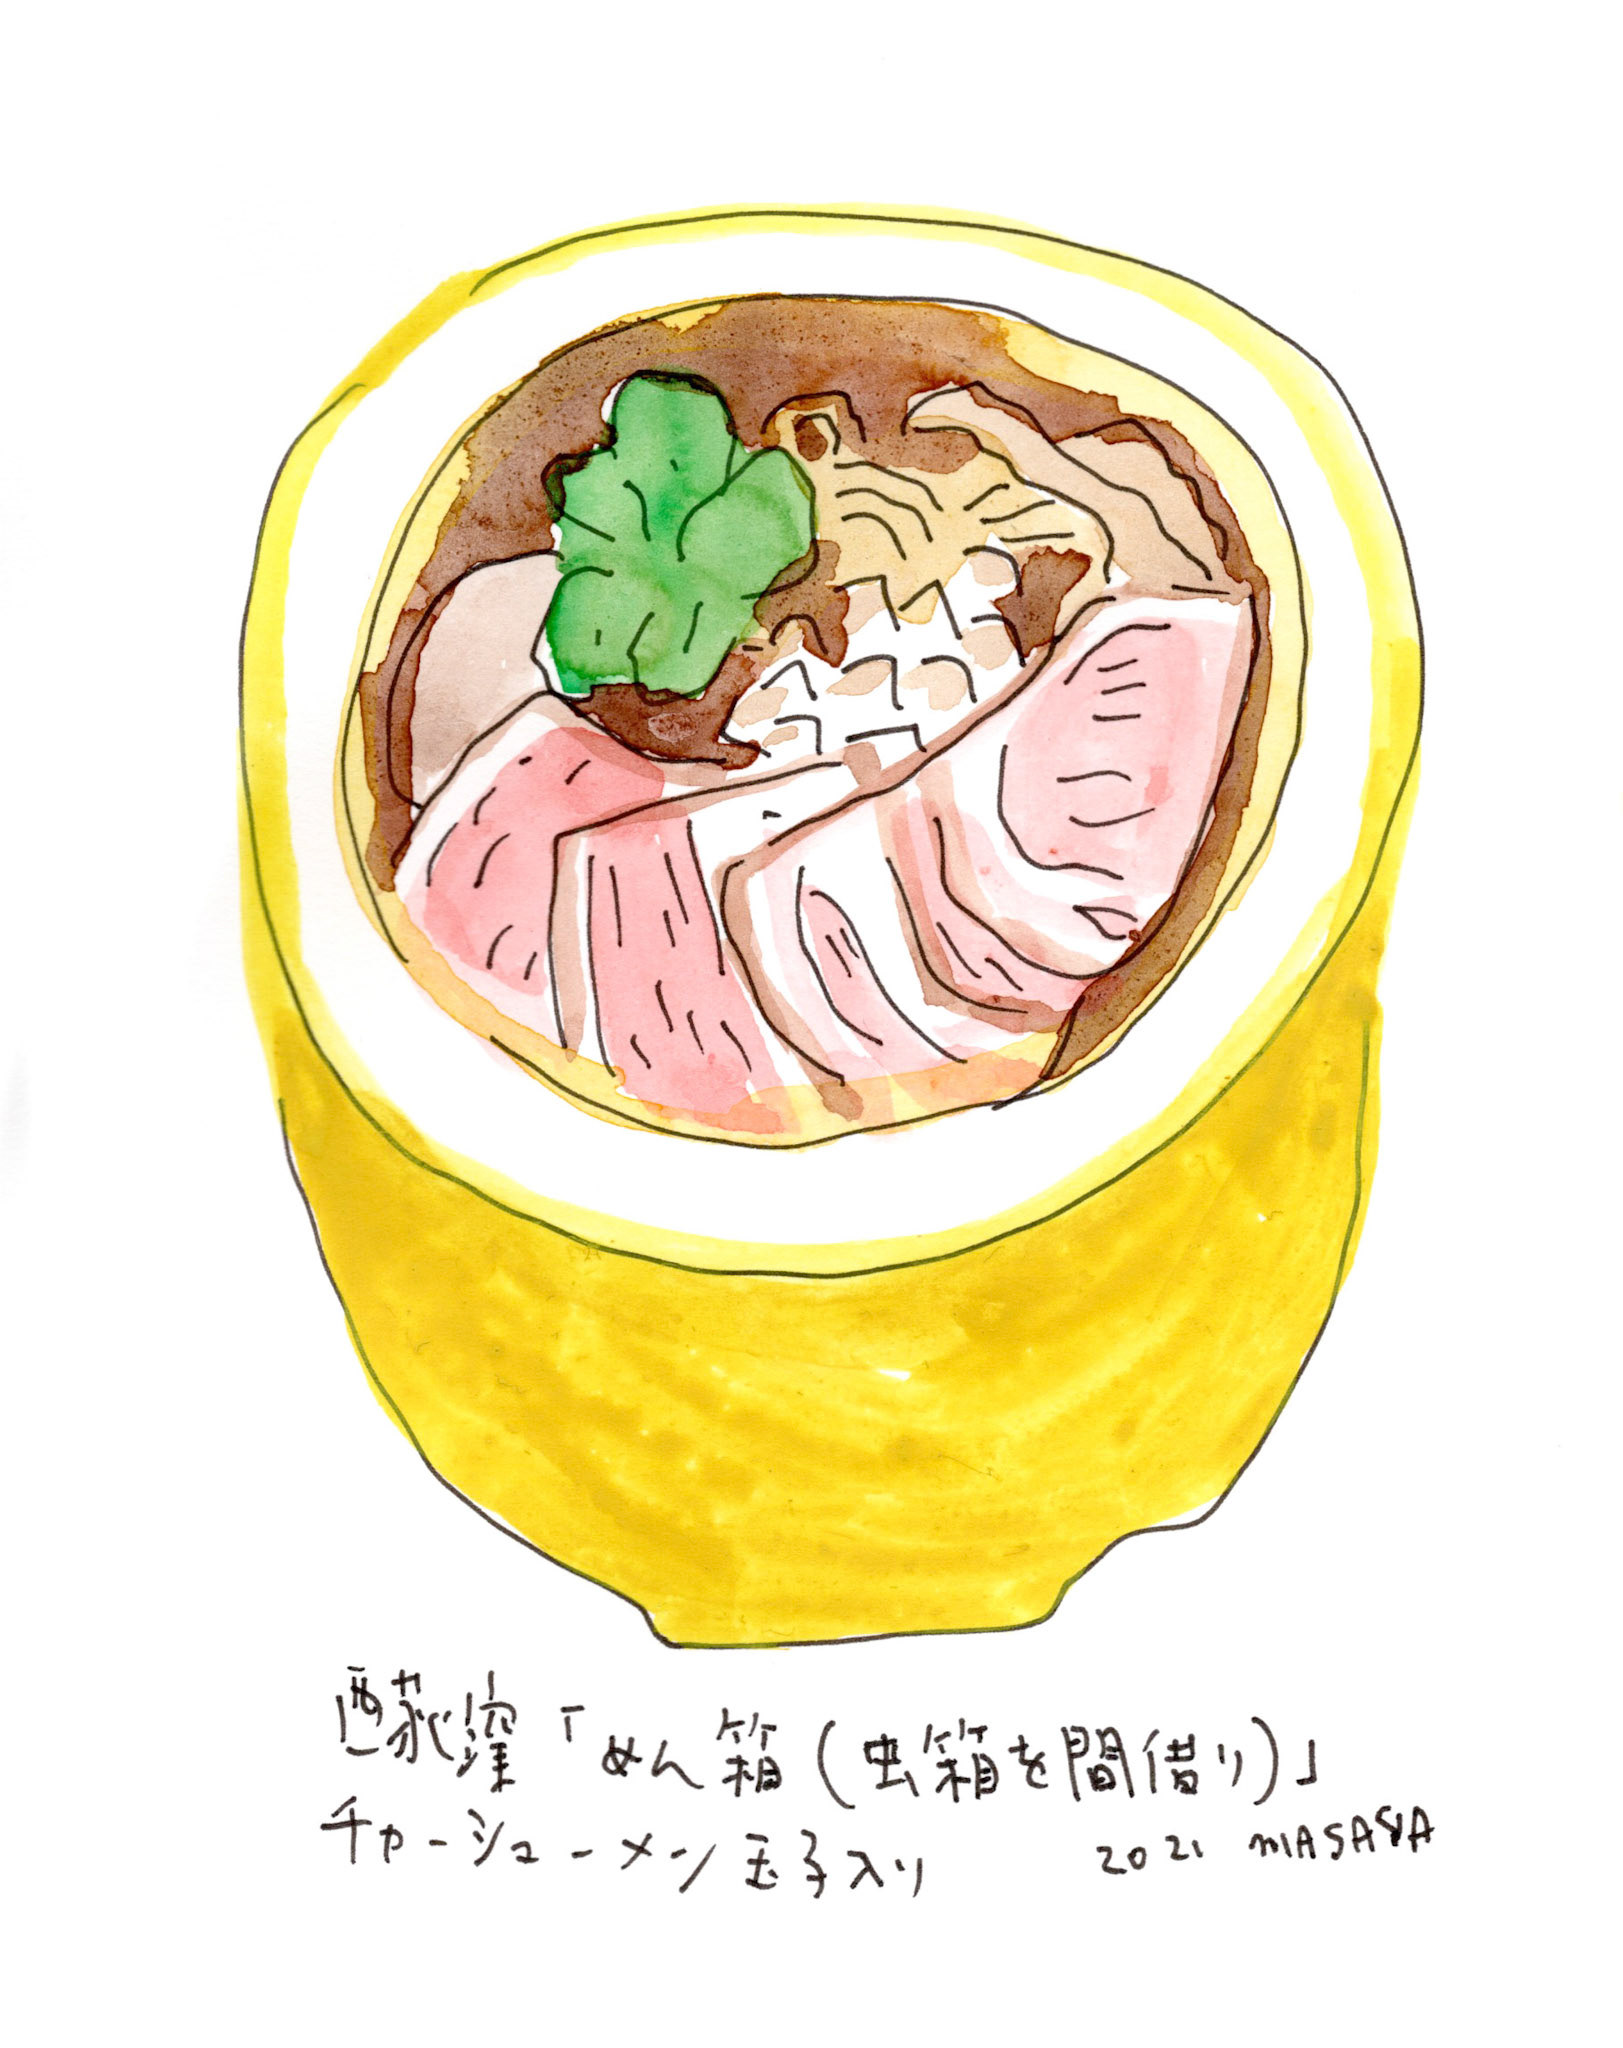 西荻窪「めん箱(虫箱を間借り)」
チャーシューメン玉子入り 2021 MASAYA